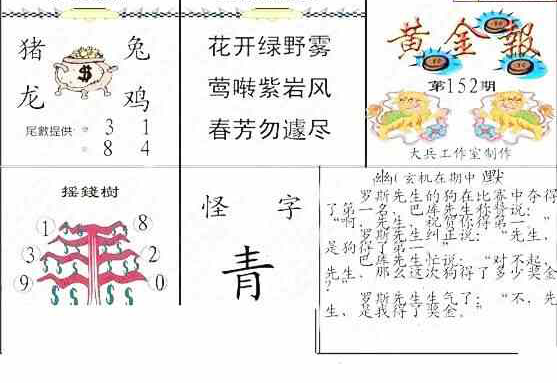 猪 兔
龙 鸡
尾數提供: 3 1
8 4
花开绿野雾
莺啭紫岩风
春芳勿遽尽
黄金報
第152期
大兵工作室制作
摇錢樹
1 8
3 2
9 0
怪 字
青
幽(玄机在期中)默
罗斯先生的狗在比赛中夺得
了第一名，巴库先生称赞说：
“啊，先生，祝贺你得第一。”
罗斯先生纠正说：“先生，
是狗得了第一。”
巴库先生忙说：“对不起，
先生，那么这次狗得了多少奖金
？”
罗斯先生生气了：“不，先
生，是我得了奖金。”